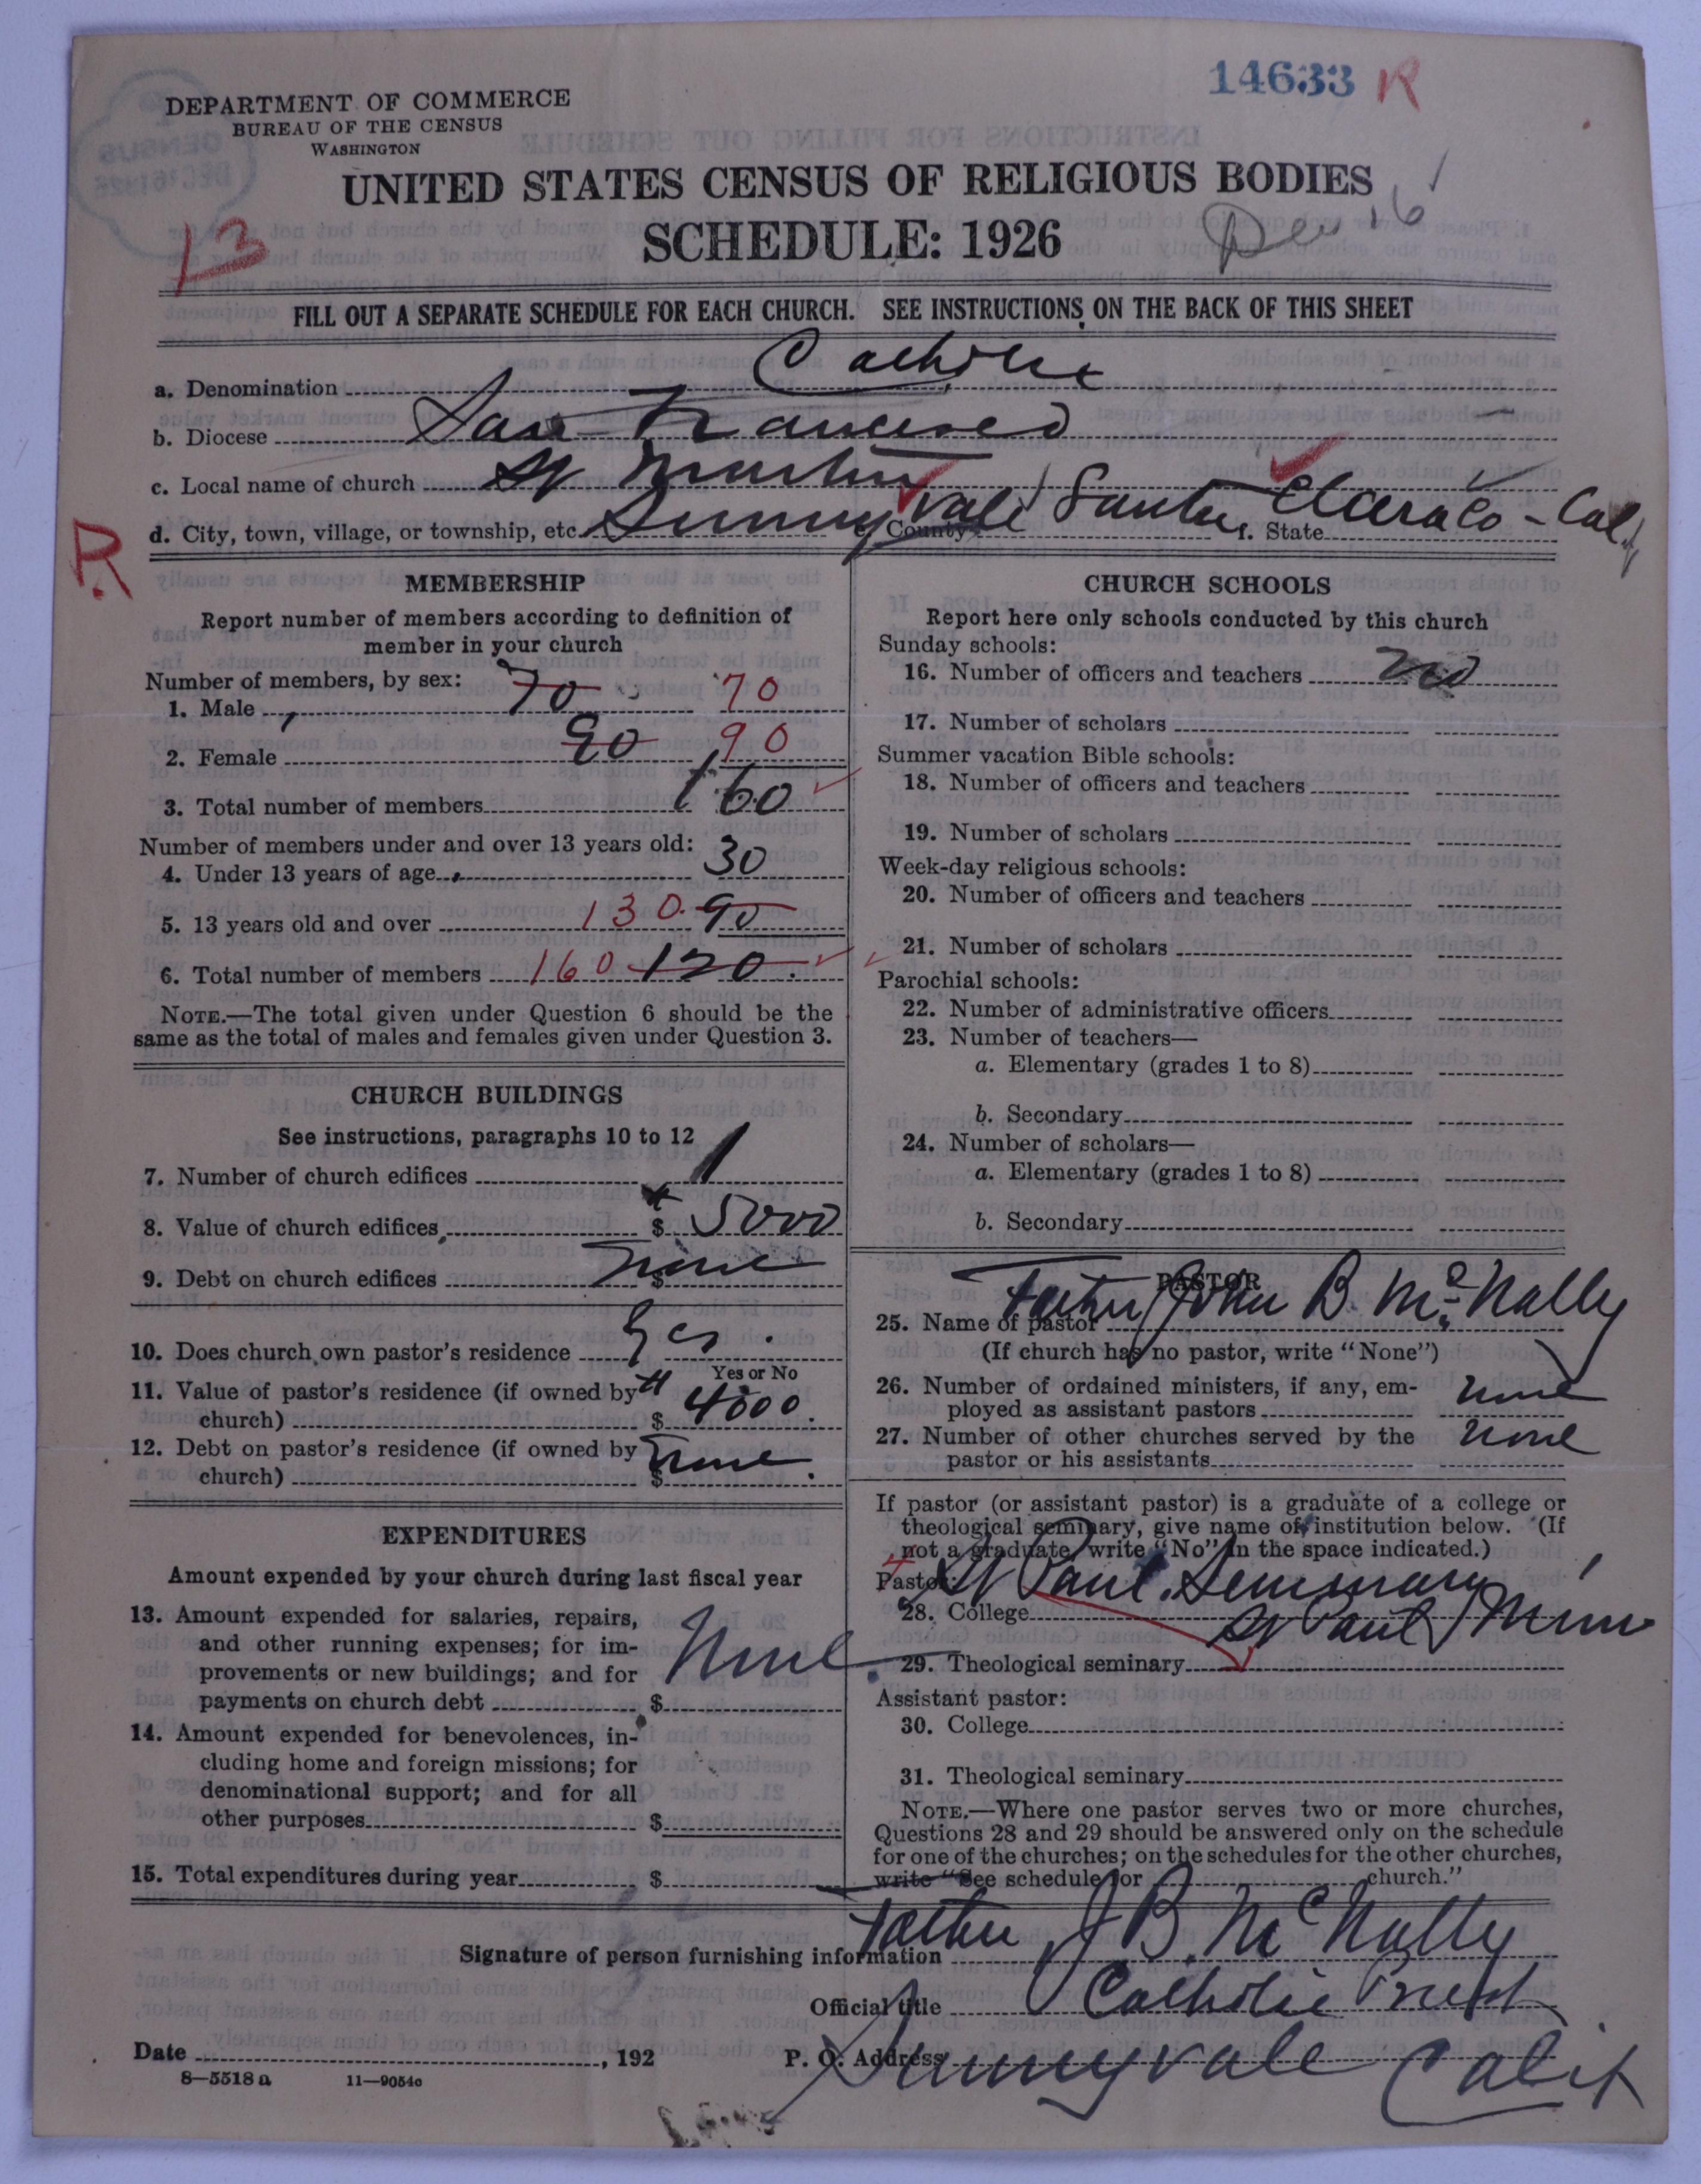 14633 R
DEPARTMENT OF COMMERCE
BUREAU OF THE CENSUS
WASHINGTON
UNITED STATES CENSUS OF RELIGIOUS BODIES
13
SCHEDULE: 1926
Dec 16
FILL OUT A SEPARATE SCHEDULE FOR EACH CHURCH. SEE INSTRUCTIONS ON THE BACK OF THIS SHEET
a. Denomination Catholic
b. Diocese San Francisco
c. Local name of church St Martin
d. City, town, village, or township, etc. Sunnyvale e. County Santa Clara Co - f. State Calif
R
MEMBERSHIP
Report number of members according to definition of
member in your church
Number of members, by sex:
1. Male 70 70
2. Female 90 90
3. Total number of members 160
Number of members under and over 13 years old:
4. Under 13 years of age 30
5. 13 years old and over 130 90
6. Total number of members 160 120
NOTE.—The total given under Question 6 should be the
same as the total of males and females given under Question 3.
CHURCH BUILDINGS
See instructions, paragraphs 10 to 12
7. Number of church edifices 1
8. Value of church edifices $ 5000
9. Debt on church edifices $ none
10. Does church own pastor's residence Yes.
Yes or No
11. Value of pastor's residence (if owned by
church) $ 4000.
12. Debt on pastor's residence (if owned by
church) $ none.
EXPENDITURES
Amount expended by your church during last fiscal year
13. Amount expended for salaries, repairs,
and other running expenses; for im-
provements or new buildings; and for
payments on church debt $ None.
14. Amount expended for benevolences, in-
cluding home and foreign missions; for
denominational support; and for all
other purposes $
15. Total expenditures during year $
CHURCH SCHOOLS
Report here only schools conducted by this church
Sunday schools:
16. Number of officers and teachers no
17. Number of scholars
Summer vacation Bible schools:
18. Number of officers and teachers
19. Number of scholars
Week-day religious schools:
20. Number of officers and teachers
21. Number of scholars
Parochial schools:
22. Number of administrative officers
23. Number of teachers—
a. Elementary (grades 1 to 8)
b. Secondary
24. Number of scholars—
a. Elementary (grades 1 to 8)
b. Secondary
PASTOR
25. Name of pastor Father John B. McNally
(If church has no pastor, write "None")
26. Number of ordained ministers, if any, em-
ployed as assistant pastors none
27. Number of other churches served by the
pastor or his assistants none
If pastor (or assistant pastor) is a graduate of a college or
theological seminary, give name of institution below. (If
not a graduate, write "No" in the space indicated.)
Pastor: St Paul Seminary
28. College St Paul Minn
29. Theological seminary
Assistant pastor:
30. College
31. Theological seminary
NOTE.—Where one pastor serves two or more churches,
Questions 28 and 29 should be answered only on the schedule
for one of the churches; on the schedules for the other churches,
write "See schedule for church."
Signature of person furnishing information Father J B. McNally
Official title Catholic Priest
Date , 192 P. O. Address Sunnyvale Calif
8—5518 a 11—9054c